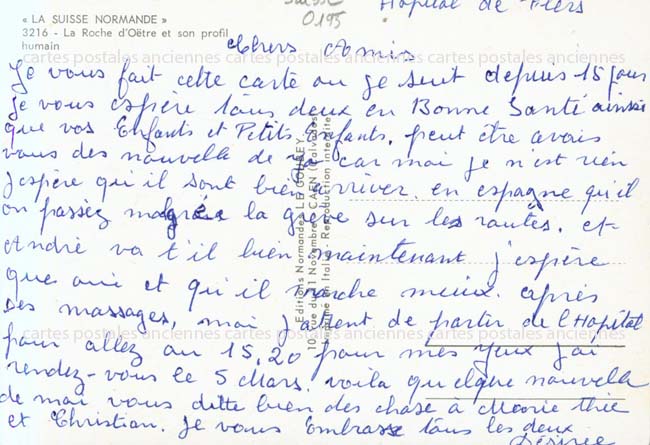 Suisse
0.195
Hopital de Flers
« LA SUISSE NORMANDE »
3216 - La Roche d'Oëtre et son profil
humain
cartes postales anciennes cartes postales anciennes cartes postales anciennes
Chers Amis
Je vous fait cette carte ou je suit depuis 15 jours
je vous espère tous deux en Bonne Santé ainssie
que vos Enfants et Petits Enfants, peut être avais
vous des nouvelle de car moi je n'est rien
j'espère qu'il sont bien arriver en espagne qu'il
on passèz malgrée la grève sur les routes. et
André va t'il bien maintenant j'espère
que oui et qu'il marche mieux. après
ses massages, moi j'attent de partir de l'Hopital
pour allez au 15.20 pour mes yeux j'ai
rendez-vous le 5 Mars. voila quelque nouvelle
de moi vous ditte bien des chose à Marie thie
et Christian. Je vous Embrasse tous les deux
Désirée
Editions Normandes LE GOUBEY
10, rue du 11 Novembre - CAEN (Calvados)
Imprimé en Italie - Reproduction interdite
cartes postales anciennes cartes postales anciennes cartes postales anciennes